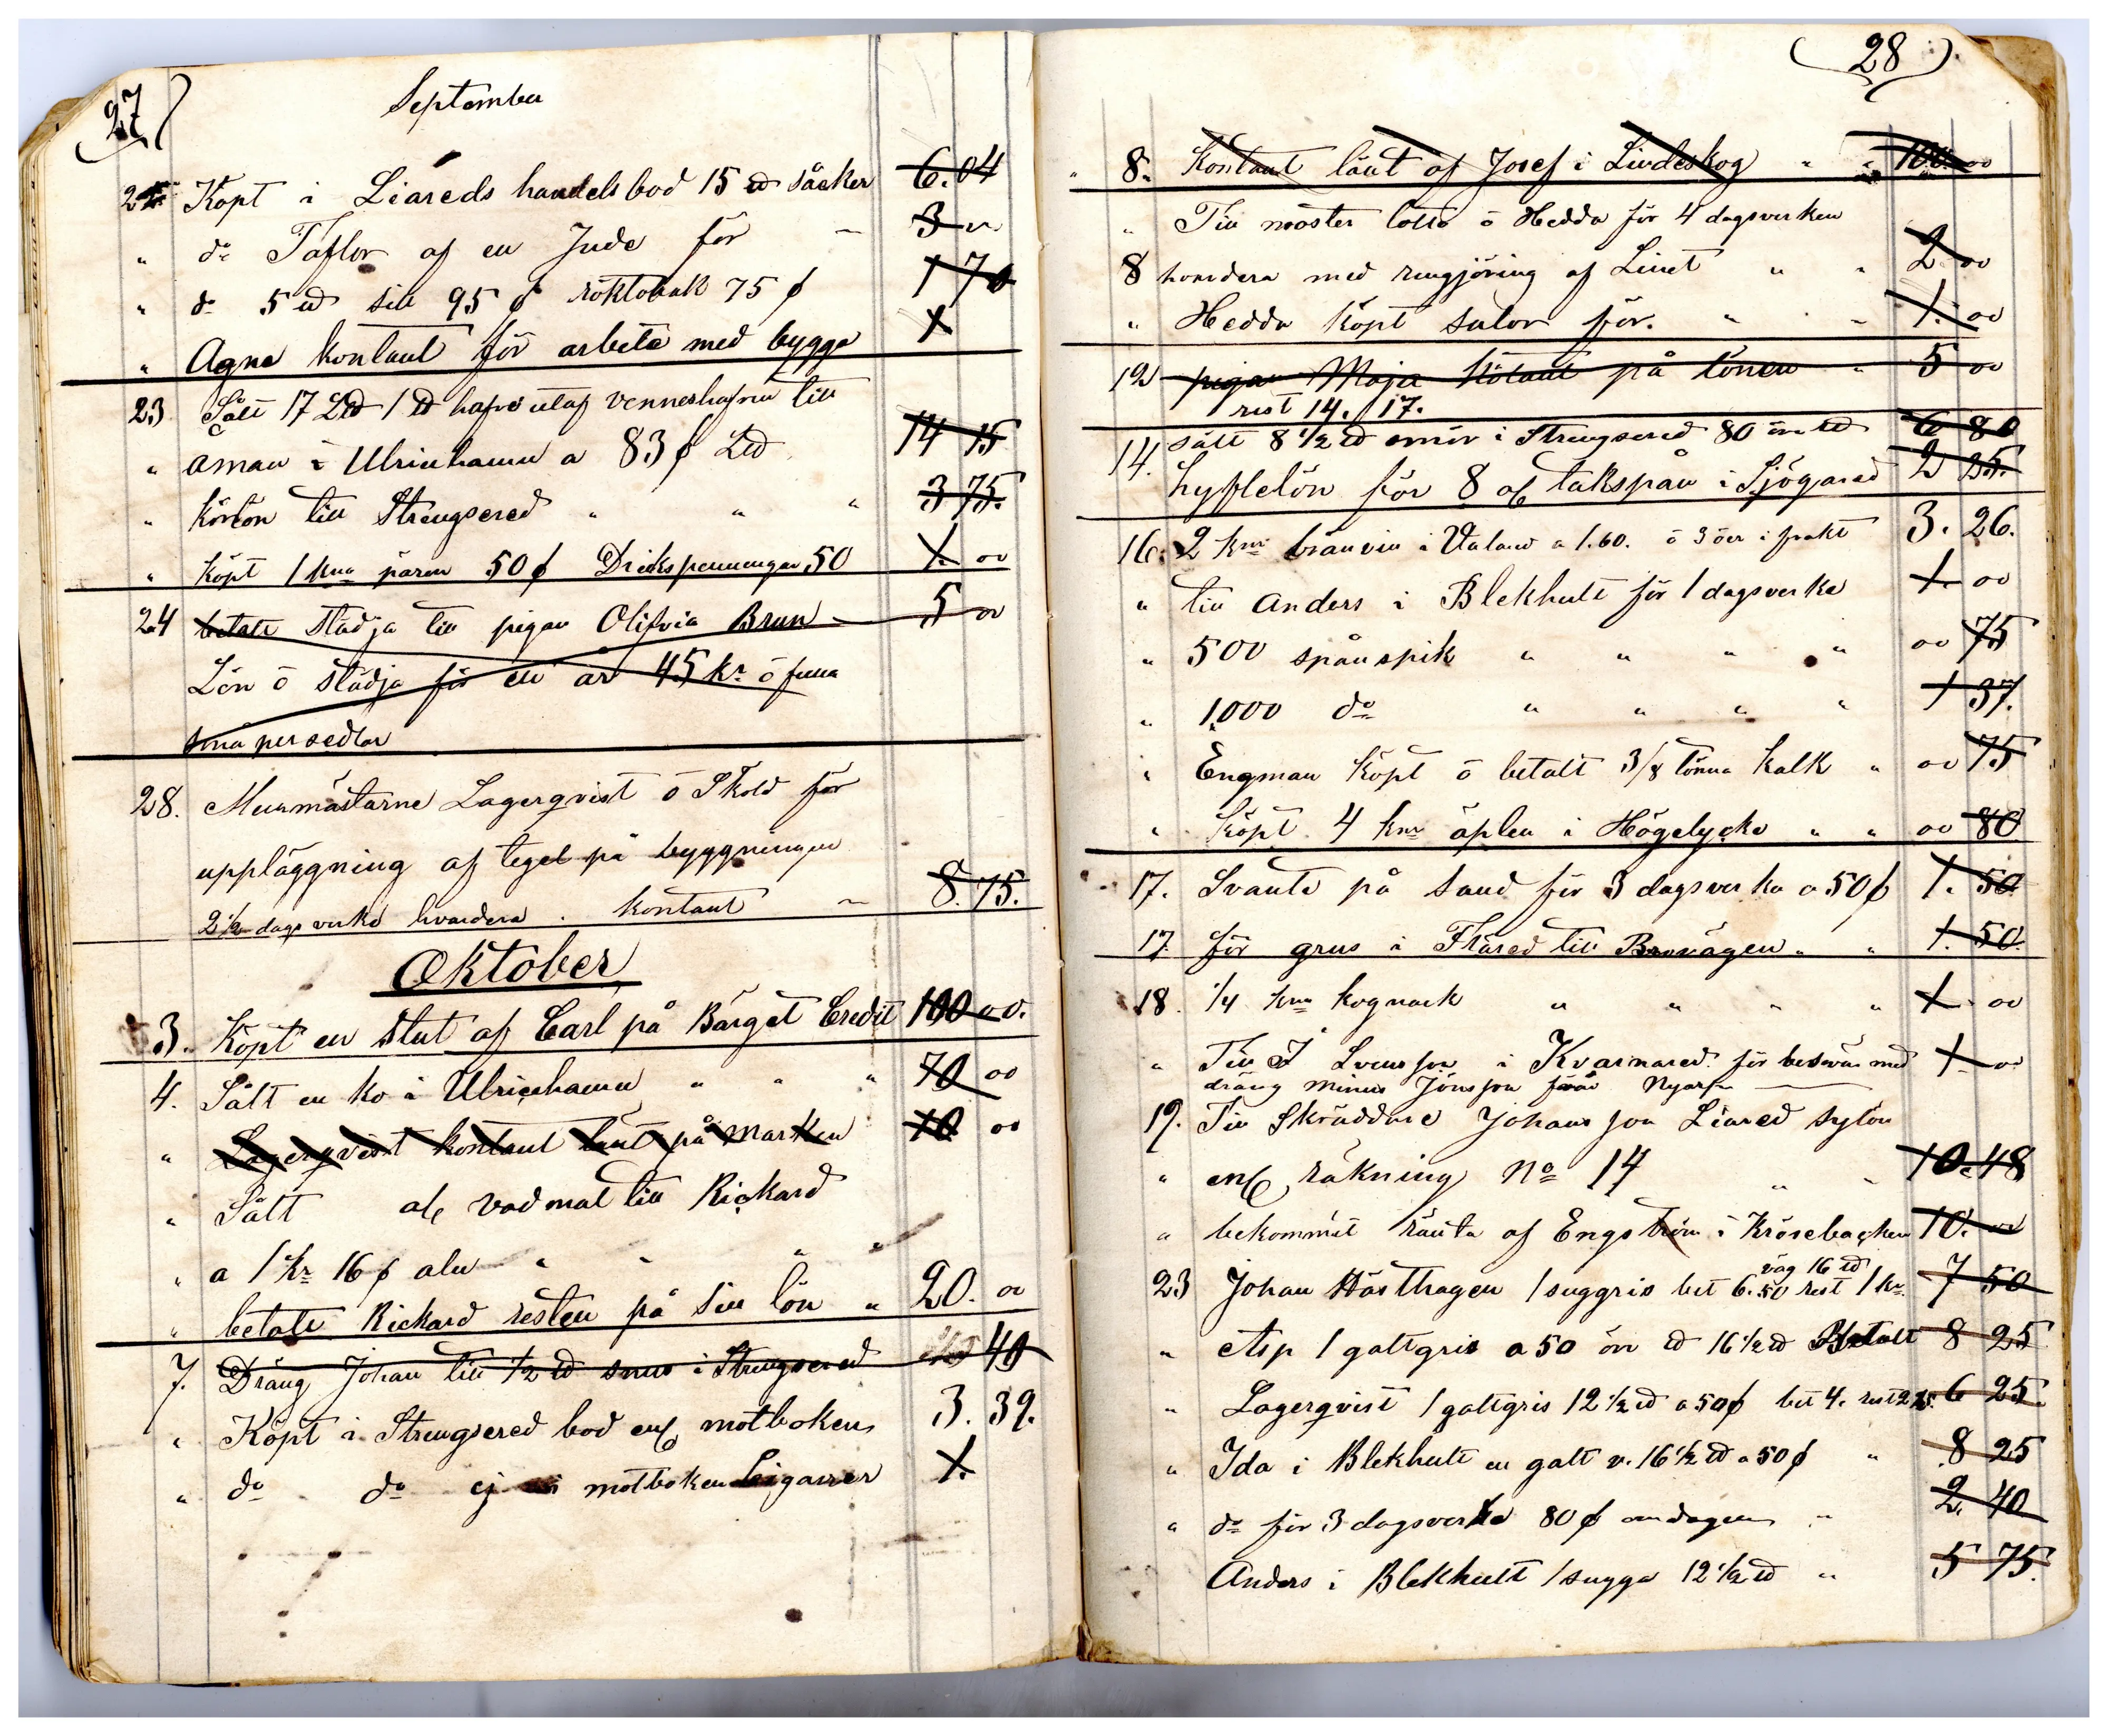 27
September
Köpt i Liareds handelsbod 15 ℔ säcker 6.04
" do Taflor af en Jude för " 3 "
" do 5 ℔ sill 95 ø röktobak 75 ø 1 70
" Agne kontant för arbete med bygga 1
23 Sålt 17 L℔ 1 ℔ hafre utaf till
" Åman i Ulricehamn a 83 ø L℔ 14 15
" Körlön till Strengsered " " " 3 75.
" Köpt 1 kna päron 50 ø Drickspenningar 50 1. 00
24 betalt städja till pigan Olifvia Brun 5 00
Lön ö städja för ett år 45 kr ö
små persedlar
28. Murmästarne Lagerqvist ö Sköld för
uppläggning af tegel på byggningen
2 1/2 dagsverke hvardera . kontant " 8.75.
Oktober
3. Köpt en stut af Carl på Barget Credit 100 00.
4. Sålt en ko i Ulricehamn " " " 70 00
" Lagerqvist kontant lånt på marken 10 00
" Sålt al, vadmal till Rickard
" a 1 kr 16 ø aln " " " "
" betalt Rickard resten på sin lön " 20. 00
7. Dräng Johan till 1/2 ℔ snus i Strengsered 40
" Köpt i Strengsered bod enl motboken 3. 39.
" do do ej i motboken Cigarrer 1.
28
" 8. Kontant lånt af Josef i Lindeskog " " 100 00
" Till moster Lotta ö Hedda för 4 dagsverken
8 hvardera med rengjöring af Linet " " 2 00
" Hedda köpt sulor för. " " 1. 00
12 pigan Maja kötant på lönen " 5 00
rest 14. 17.
14. sålt 8 1/2 ℔ smör i Strengsered 80 öre ℔ 6 80
hyflelön för 8 al takspån i Sjögared 2 25.
16. 2 knr bränvin i a 1.60. ö 3 öer i frakt 3. 26.
" till Anders i Blekhult för 1 dagsverke 1. 00
" 500 spånspik " " " " 00 75
" 1,000 do " " " " 1 37.
" Engman köpt ö betalt 3/8 tönna kalk " 00 75
" Köpt 4 knr äplen i Högelycke " " 00 80
17. Svante på Sand för 3 dagsverka a 50 ø 1. 50
17. för grus i Flared till Brovägen " " 1. 50.
18. 1/4 kna kognack " " " " 1 00
" Till J Svensson i Kvarnared för besvär med 1 00
dräng minus Jönsson från
19. Till Skräddare Johansson Liared sylön
" enl, räkning No 17 " " 10.48
" bekommit ränta af Engström i Krösebacken 10. 00
väg 16 ℔
23 Johan Hästhagen 1 suggris bet 6.50 rest 1 kr. 7 50
" Asp 1 galtgris a 50 öre ℔ 16 1/2 ℔ Betalt 8 25
" Lagerqvist 1 galtgris 12 1/2 ℔ a 50 ø bet 4. rest 2.25 6 25.
" Ida i Blekhult en galt v. 16 1/2 ℔ a 50 ø " 8 25
" do för 3 dagsverke 80 ø om dagen " 2. 40
Anders i Blekhult 1 sugga 12 1/2 ℔ " 5 75.